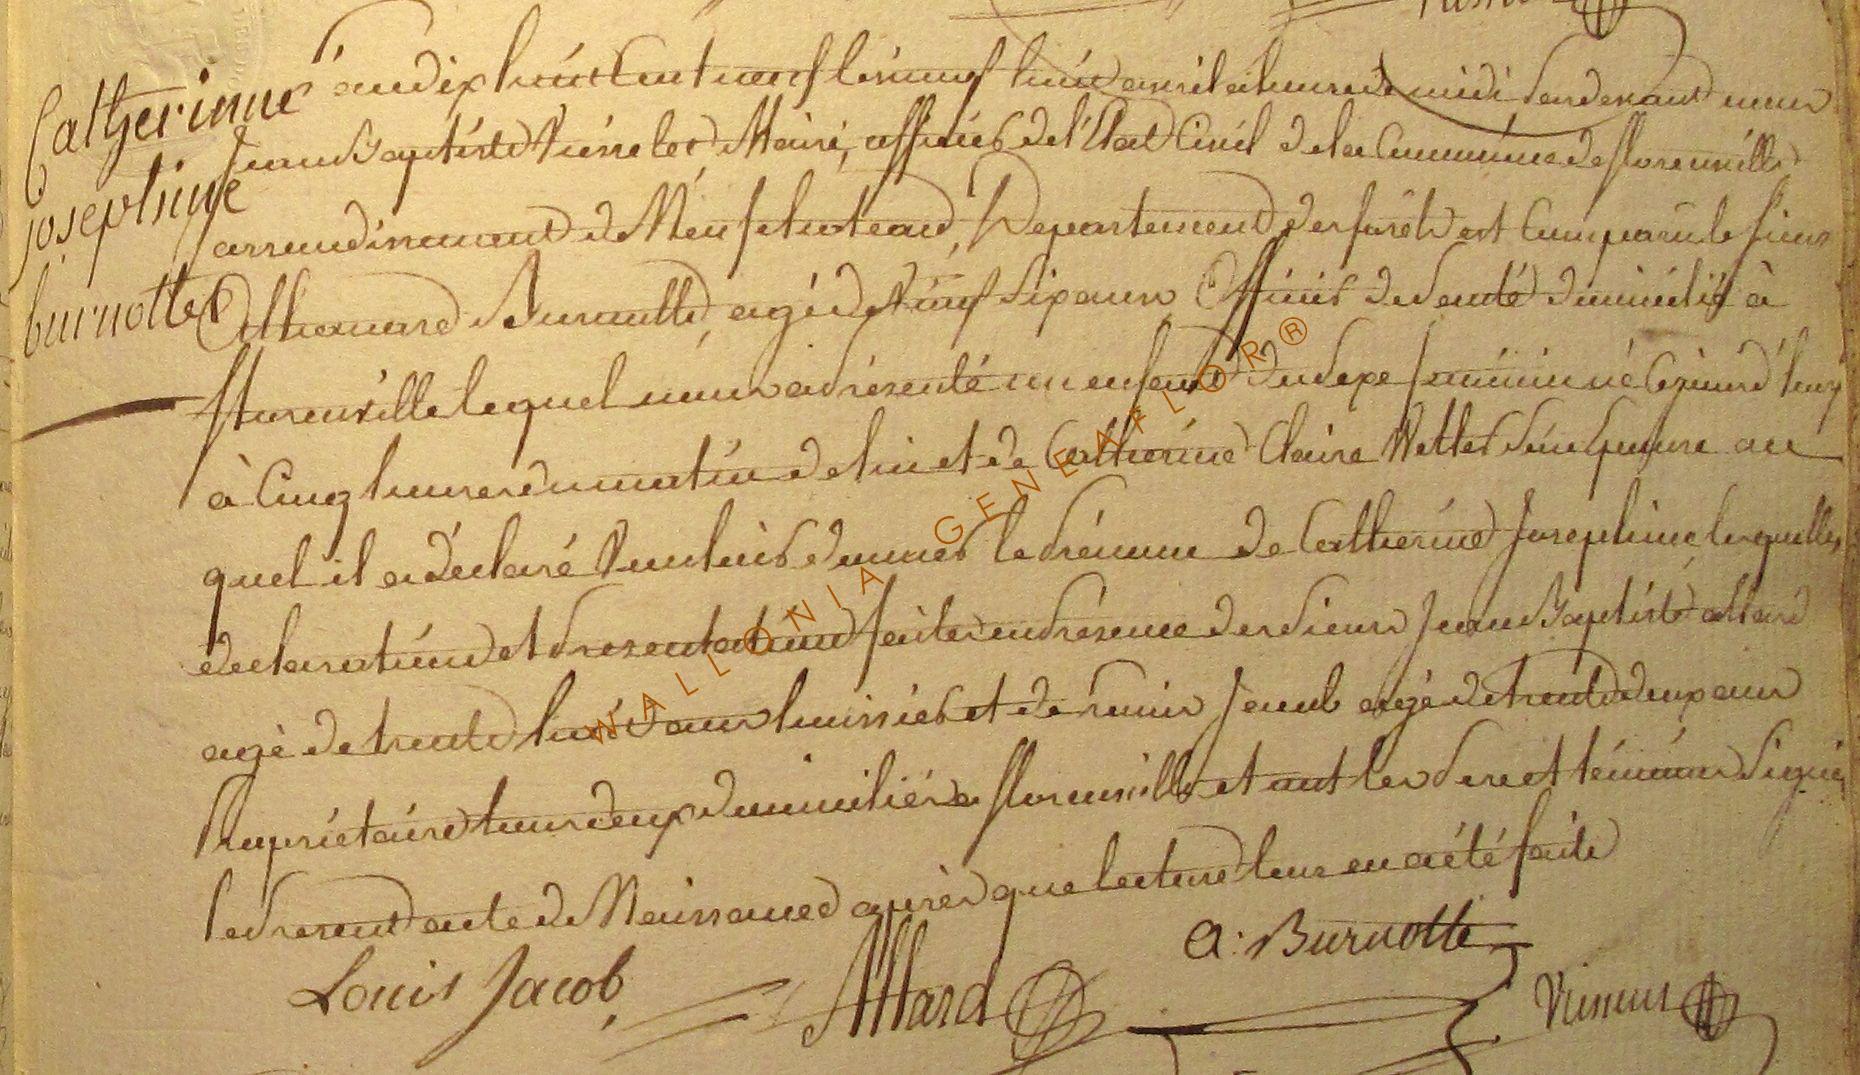 Catherinne
josephine
burnotte
L'an dix huit cent neuf le vingt huit avril a heure de midi pardevant nous
Jean Baptiste Maire, officier de l'Etat Civil de la Commune de florenville
arrondissement de Neufchateau, Departement des forêts est comparu le sieur
Athanase Burnotte, agé de vingt six ans Officier de santé domicilié à
florenville lequel nous a présenté un enfant du sexe féminin né cejourd'huy
à cinq heures du matin de lui et de Catherine Claire son epouse au
quel il a déclaré vouloir donner le prénom de Catherine Josephine lesquelles
declaration et presentation faites en présence des sieurs Jean Baptiste allard
agé de trente huit ans huissier et de Louis Jacob agé de trente deux ans
propriétaire tous deux domiciliés a florenville et ont les pere et témoins signé
le present acte de Naissance après que lecture leur en a été faite
a: Burnotte
Louis Jacob
Allard
WALLONIA GENEAFLOR®